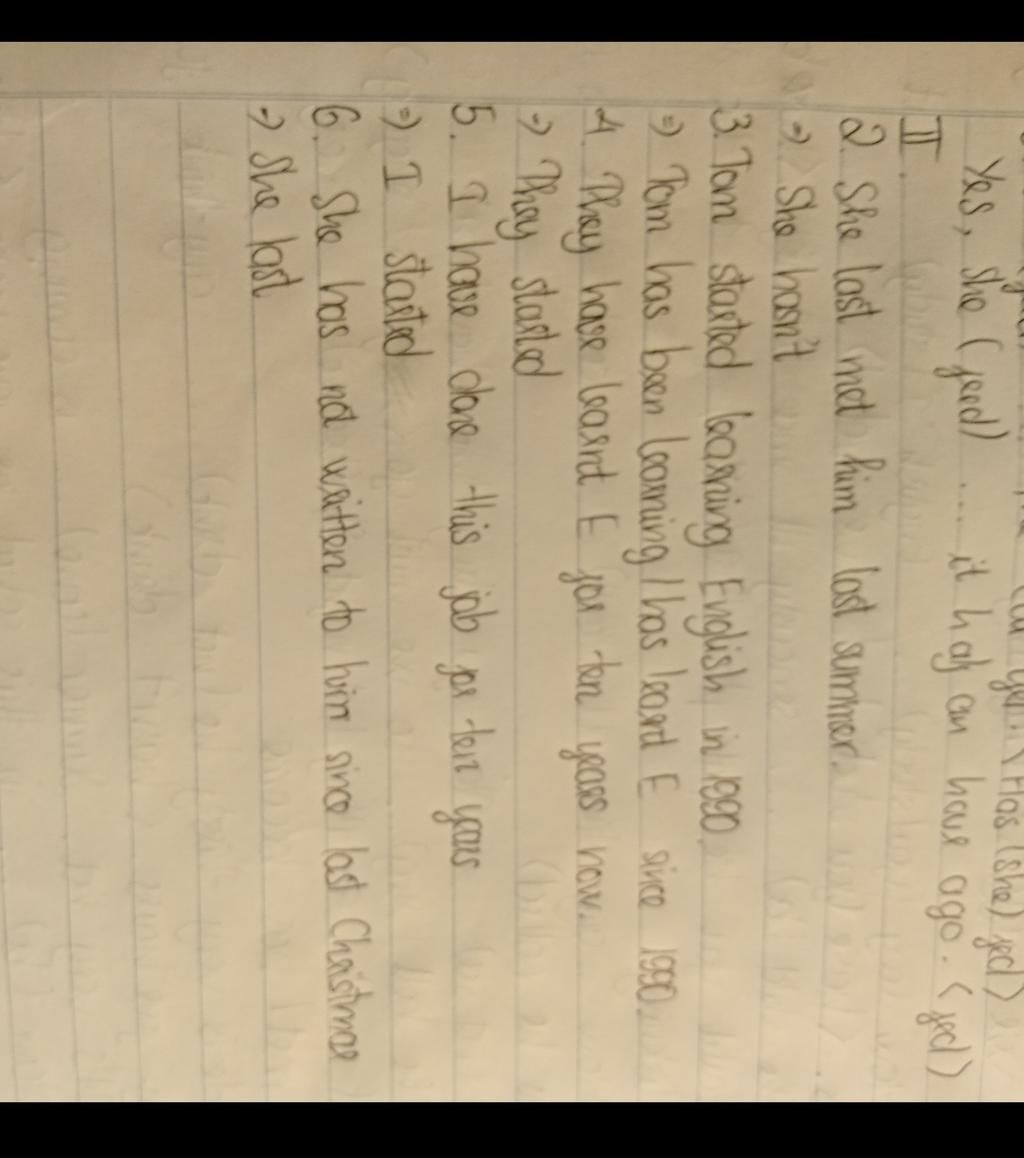 Yes, she (feed) .... it haf an hour ago. < fed >
II.
2. She last met him last summer.
=> She hasn't
3. Tom started learning English in 1990.
=> Tom has been learning / has learnt E since 1990.
4. They have learnt E for ten years now.
=> They started
5. I have done this job for ten years
=> I started
6. She has not written to him since last Christmas
=> She last